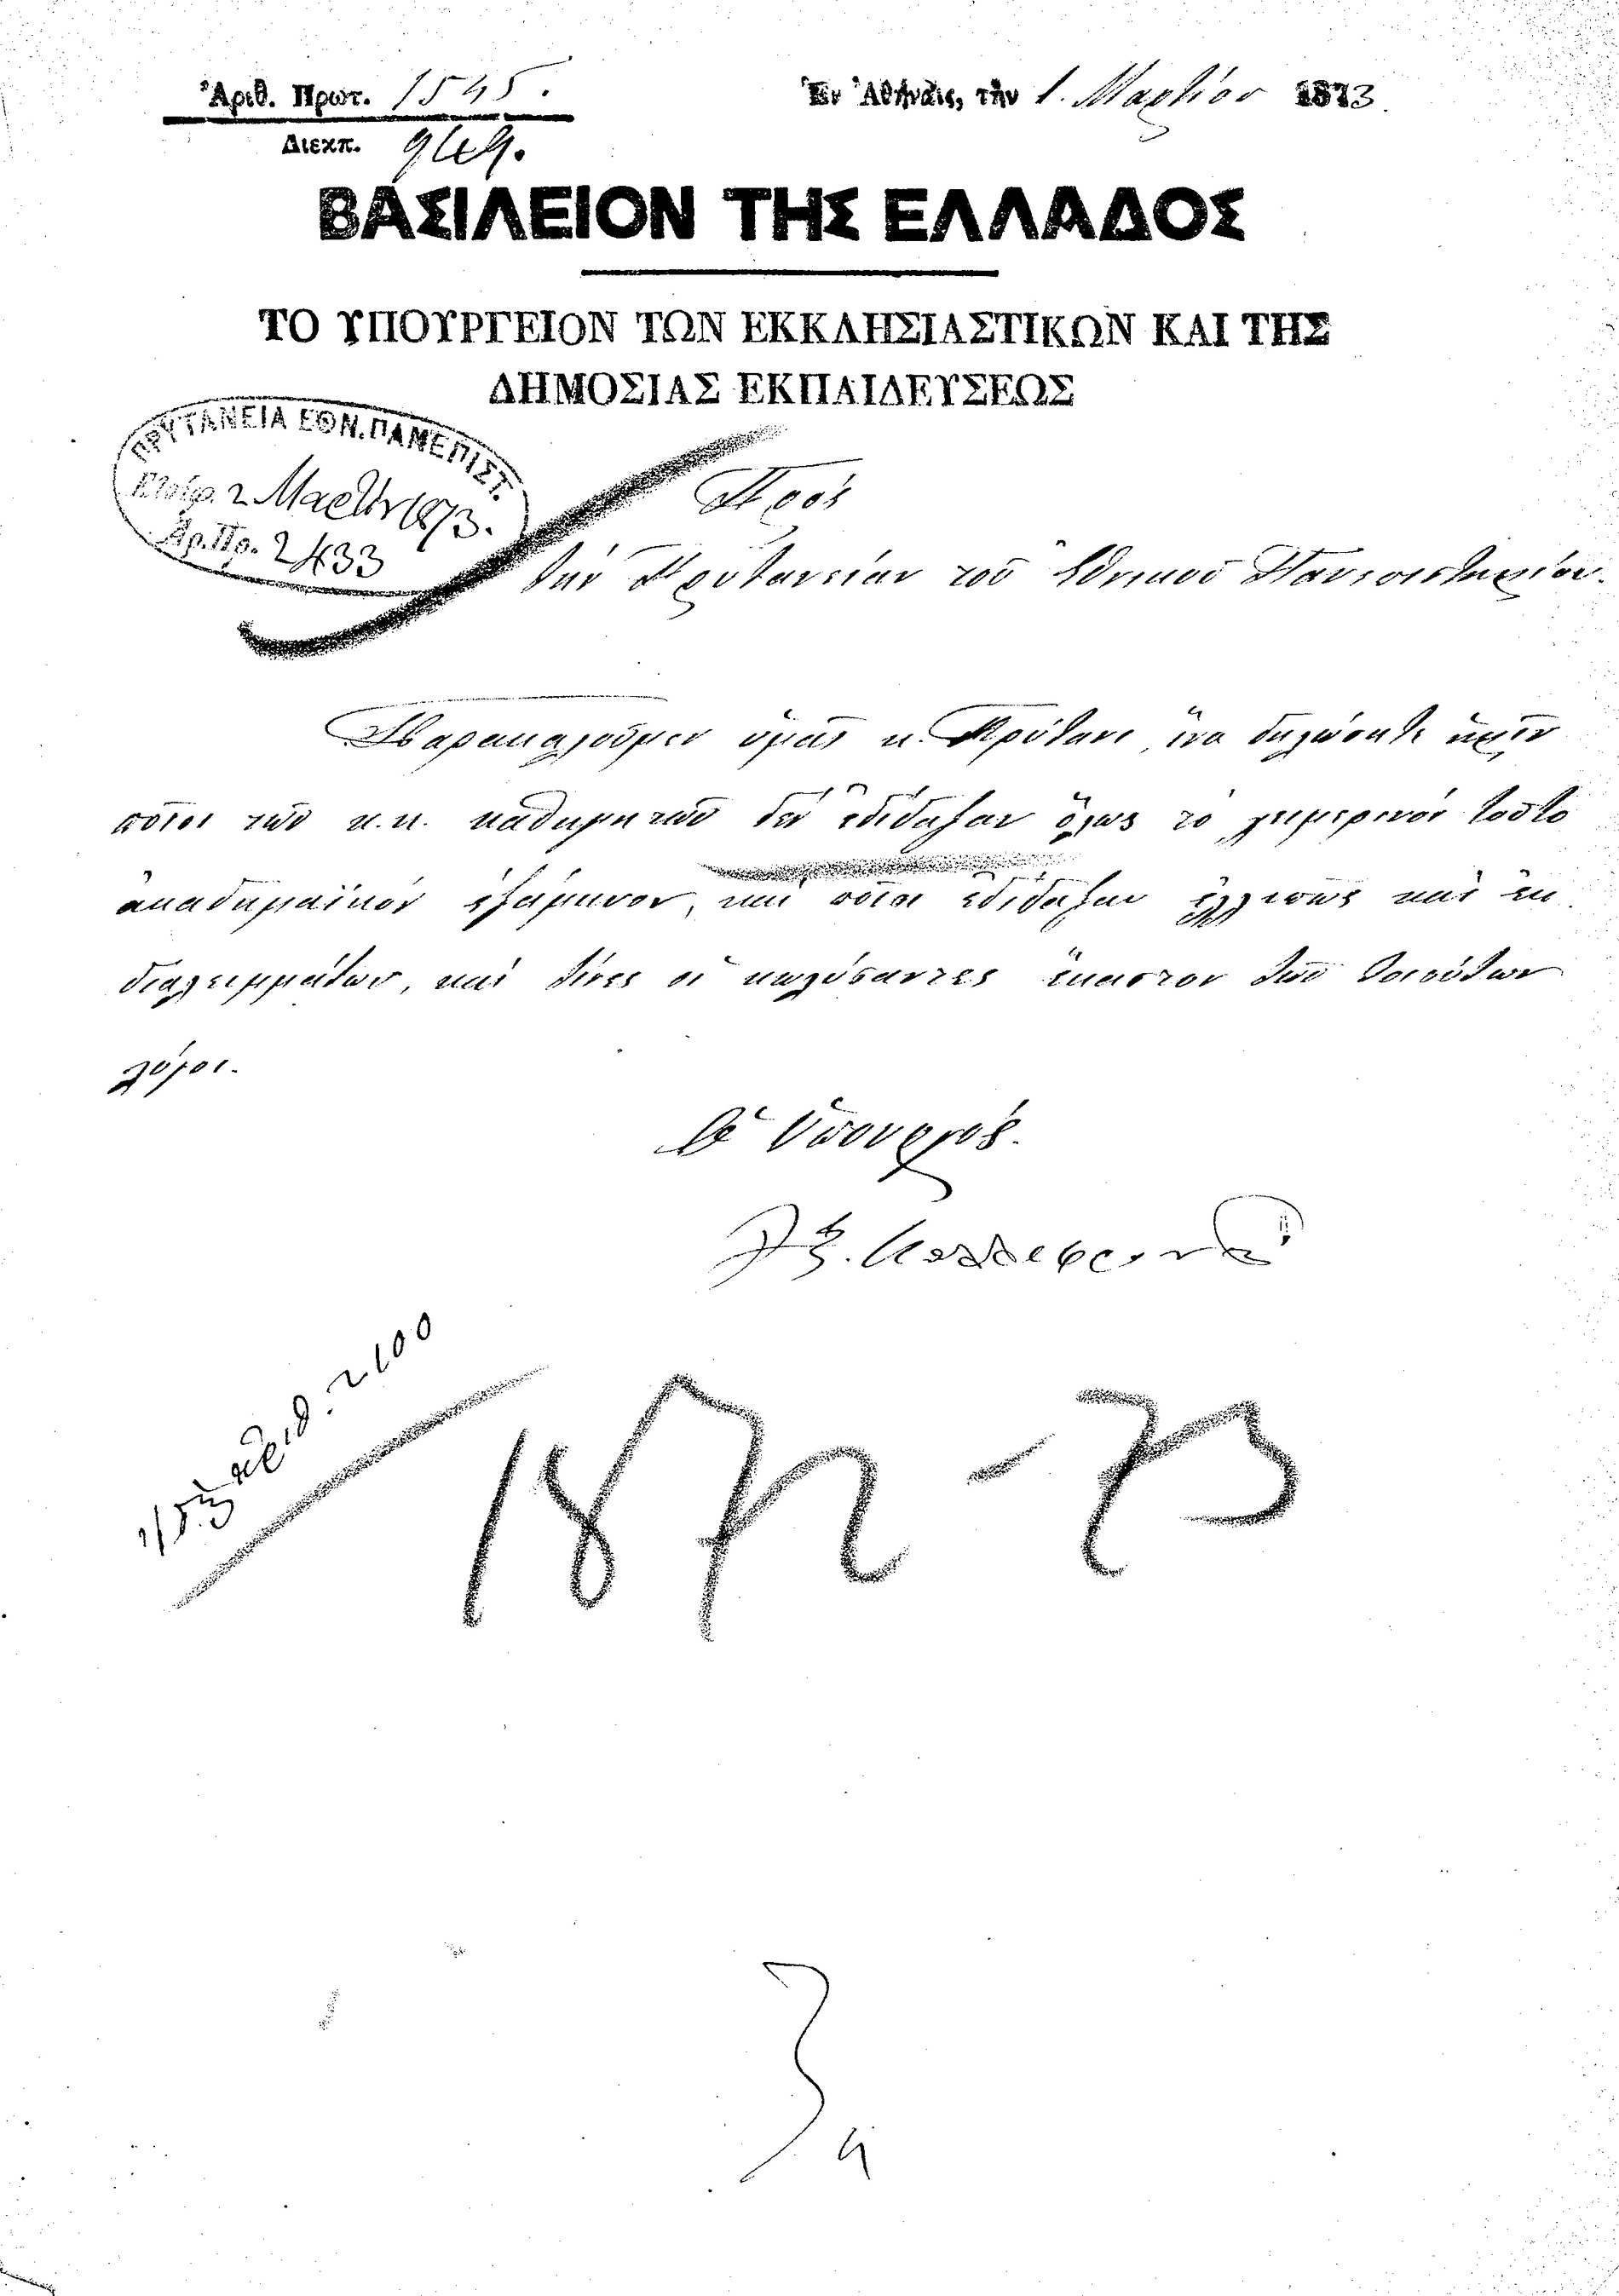 Ἀριθ. Πρωτ. 1545.
Διεκπ. 949.
Ἐν Ἀθήναις, τὴν 1. Μαρτίου 1873.
ΒΑΣΙΛΕΙΟΝ ΤΗΣ ΕΛΛΑΔΟΣ
ΤΟ ΥΠΟΥΡΓΕΙΟΝ ΤΩΝ ΕΚΚΛΗΣΙΑΣΤΙΚΩΝ ΚΑΙ ΤΗΣ
ΔΗΜΟΣΙΑΣ ΕΚΠΑΙΔΕΥΣΕΩΣ
ΠΡΥΤΑΝΕΙΑ ΕΘΝ. ΠΑΝΕΠΙΣΤ.
2 Μαρτίου 1873.
Ἀρ. Πρ. 2433
Πρὸς
τὴν Πρυτανείαν τοῦ Ἐθνικοῦ Πανεπιστημίου.
Παρακαλοῦμεν ὑμᾶς κ. Πρύτανι, ἵνα δηλώσητε ἡμῖν
ποῖοι τῶν κ.κ. καθηγητῶν δὲν ἐδίδαξαν ὅλως τὸ χειμερινὸν τοῦτο
ἀκαδημαϊκὸν ἑξάμηνον, καὶ ποῖοι ἐδίδαξαν ἐλλιπῶς καὶ ἐκ
διαλειμμάτων, καὶ τίνες οἱ κωλύσαντες ἕκαστον τῶν τοιούτων
λόγοι.
Ὁ Ὑπουργὸς
ἀριθ. 2100
1872-73